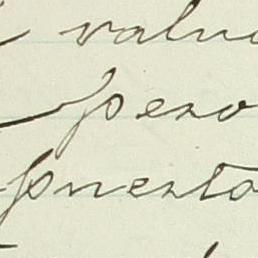 valu
peso
puesto